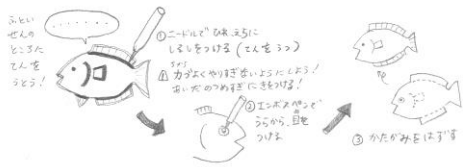 ふとい
せんの
ところに
てんを
うとう！
・・・・・・・
①ニードルで ひれ、えらに
しるしをつける（てんをうつ）
⚠ 力づよくやりすぎないようにしよう！
ちから
②エンボスペンで
うらから、目を
つける
③ かたがみをはずす